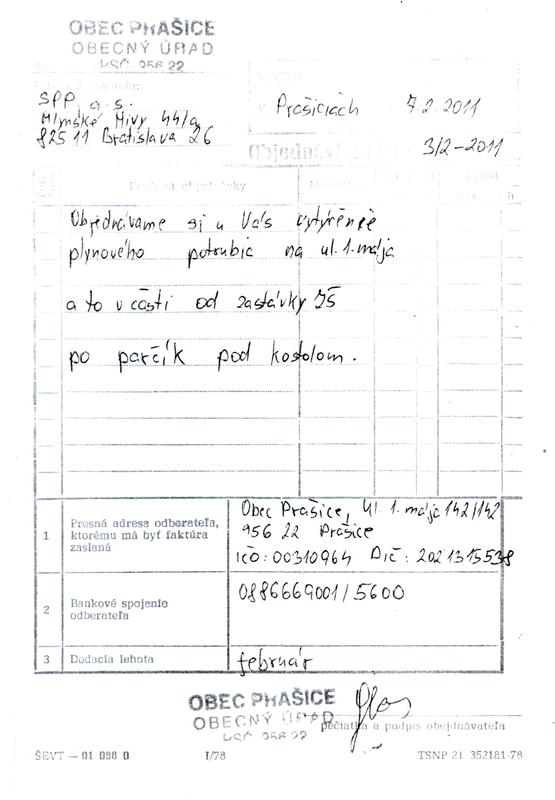 OBEC PRAŠICE
OBECNÝ ÚRAD
PSČ 956 22
SPP, a.s.
Mlynské Nivy 44/a
825 11 Bratislava 26
V Prašiciach 7.2.2011
Objednávka 3/2-2011
Predmet objednávky
Objednávame si u Vás vytýčenie
plynového potrubia na ul. 1. mája
a to v časti od zastávky
po parčík pod kostolom.
1 Presná adresa odberateľa, ktorému má byť faktúra zaslaná
Obec Prašice, Ul. 1. mája 142/142
956 22 Prašice
IČO: 00310964 DIČ: 2021315538
2 Bankové spojenie odberateľa
0886669001/5600
3 Dodacia lehota február
OBEC PRAŠICE
OBECNÝ ÚRAD
PSČ 956 22
pečiatka a podpis objednávateľa
ŠEVT — 01 088 0 I/78 TSNP 21 352181-78